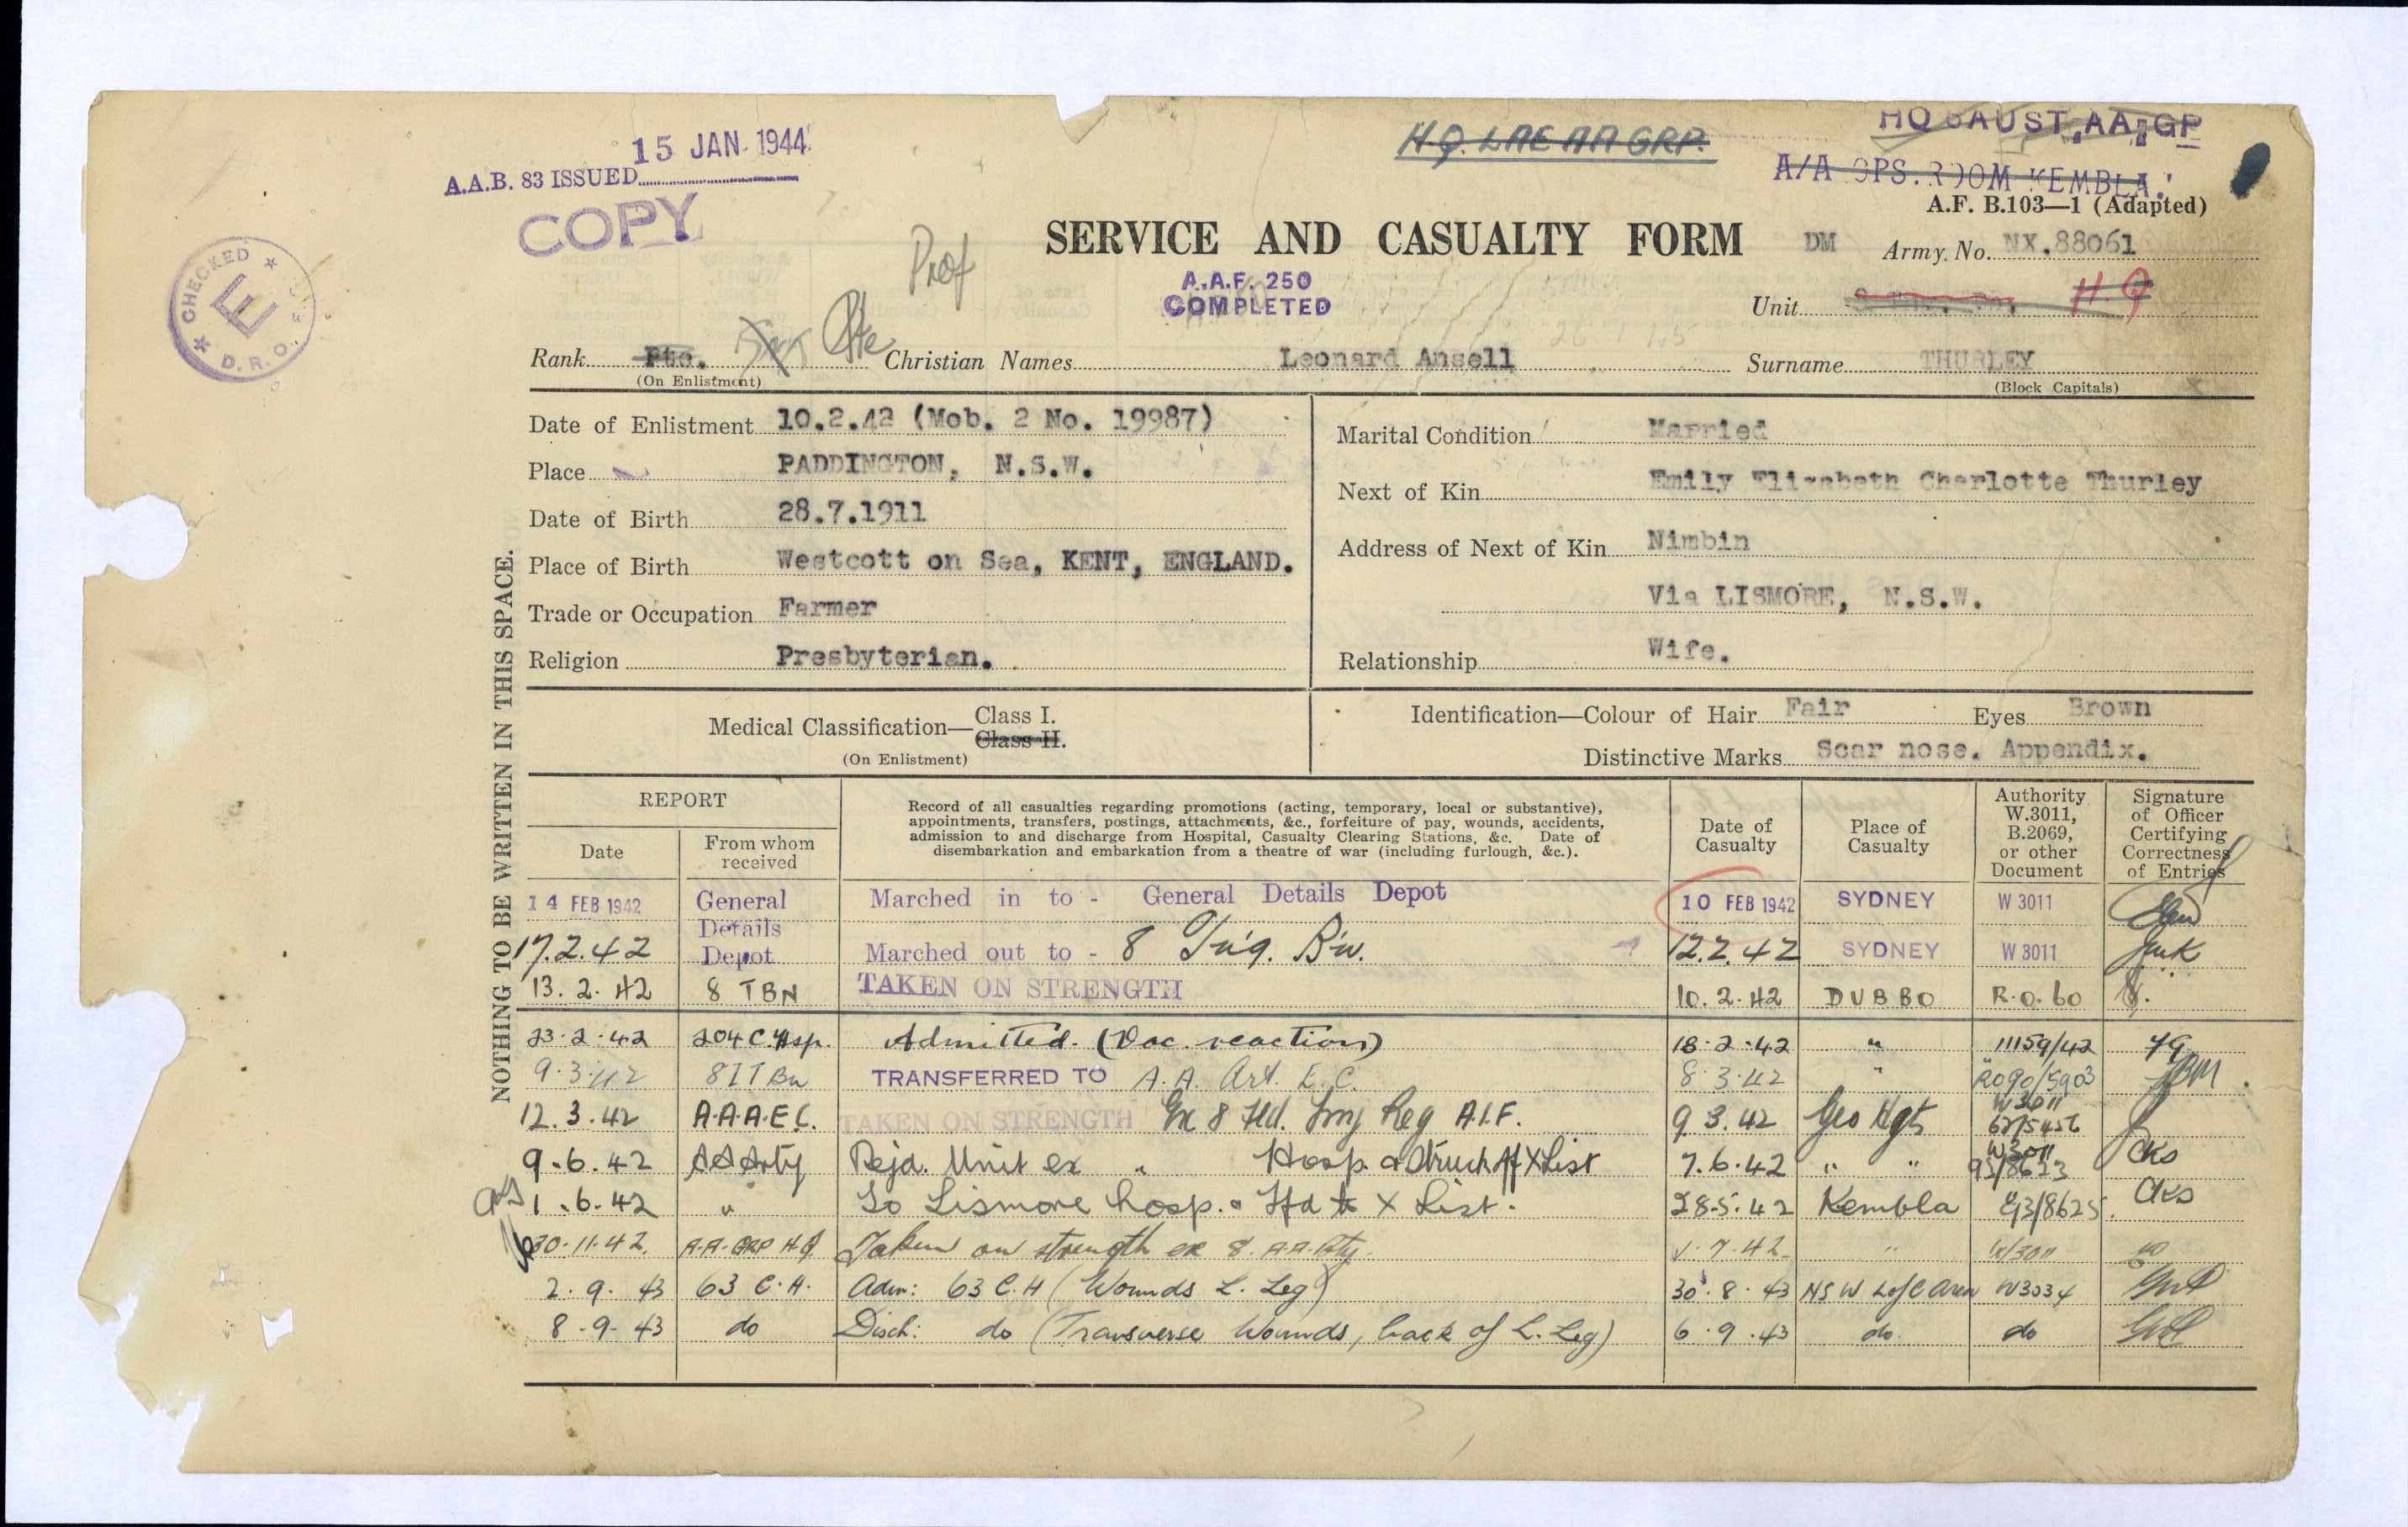 15 JAN 1944
A.A.B. 83 ISSUED
COPY
H.Q. LAE AA GRP.
HQ AUST. AA. GP
A/A OPS. ROOM KEMBLA.
A.F. B.103—1 (Adapted)
CHECKED E D.R.O.
Prof
SERVICE AND CASUALTY FORM
DM Army No. NX.88061
A.A.F. 250
COMPLETED
Unit H.Q
Rank Pte. Pte Christian Names Leonard Ansell Surname THURLEY
(On Enlistment) (Block Capitals)
Date of Enlistment 10.2.42 (Mob. 2 No. 19987)
Place PADDINGTON, N.S.W.
Date of Birth 28.7.1911
Place of Birth Westcott on Sea, KENT, ENGLAND.
Trade or Occupation Farmer
Religion Presbyterian.
Marital Condition Married
Next of Kin Emily Elizabeth Charlotte Thurley
Address of Next of Kin Nimbin
Via LISMORE, N.S.W.
Relationship Wife.
NOTHING TO BE WRITTEN IN THIS SPACE.
Medical Classification— Class I.
Class II.
(On Enlistment)
Identification—Colour of Hair Fair Eyes Brown
Distinctive Marks Scar nose. Appendix.
REPORT
Date
From whom received
Record of all casualties regarding promotions (acting, temporary, local or substantive),
appointments, transfers, postings, attachments, &c., forfeiture of pay, wounds, accidents,
admission to and discharge from Hospital, Casualty Clearing Stations, &c. Date of
disembarkation and embarkation from a theatre of war (including furlough, &c.).
Date of Casualty
Place of Casualty
Authority W.3011, B.2069, or other Document
Signature of Officer Certifying Correctness of Entries
14 FEB 1942 General Details Depot Marched in to - General Details Depot 10 FEB 1942 SYDNEY W 3011
17.2.42 Marched out to - 8 Tng. Bn. 12.2.42 SYDNEY W 3011
13.2.42 8 TBN TAKEN ON STRENGTH 10.2.42 DUBBO R.O. 60
23.2.42 204 C. Hsp. Admitted. (Vac. reaction) 18.2.42 " 11159/42
9.3.42 8 I T Bn TRANSFERRED TO A.A. Art. E.C. 8.3.42 " RO90/5903
12.3.42 A.A.A.E.C. TAKEN ON STRENGTH Ex 8 Fld. Trng Reg A.I.F. 9.3.42 Geo Hgts W3011
9.6.42 AA Arty Rejd. Unit ex " Hosp. & Struck off X List 7.6.42 " " W3011 93/8623 CKS
1.6.42 " To Lismore hosp. & Tfd to X List. 28.5.42 Kembla 93/8625. CKS
30.11.42 A.A. GRP H.Q Taken on strength ex 8. A.A. Bty. 1.7.42 " W3011
2.9.43 63 C.H. Adm: 63 C.H (Wounds L. Leg) 30.8.43 NSW LofC Area W3034
8.9.43 do Disch: do (Transverse Wounds, back of L. Leg) 6.9.43 do do